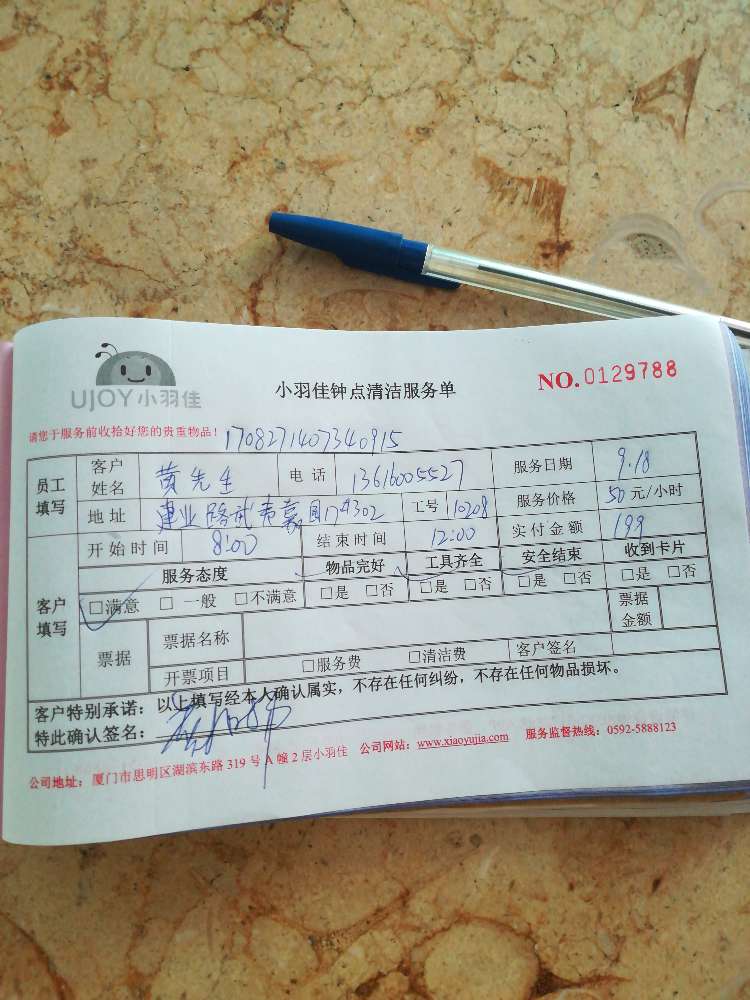 UJOY小羽佳
小羽佳钟点清洁服务单
NO.0129788
请您于服务前收拾好您的贵重物品!
1708271407340915
员工填写 客户姓名 黄先生 电话 13616005527 服务日期 9.18
地址 建业路 园 302 工号 10208 服务价格 50元/小时
开始时间 8:00 结束时间 12:00 实付金额 199
客户填写 服务态度 物品完好 工具齐全 安全结束 收到卡片
□满意 □一般 □不满意 □是 □否 □是 □否 □是 □否 □是 □否
票据 票据名称 票据金额
开票项目 □服务费 □清洁费 客户签名
客户特别承诺:以上填写经本人确认属实,不存在任何纠纷,不存在任何物品损坏。
特此确认签名:
公司地址:厦门市思明区湖滨东路319号A幢2层小羽佳 公司网站:www.xiaoyujia.com 服务监督热线:0592-5888123